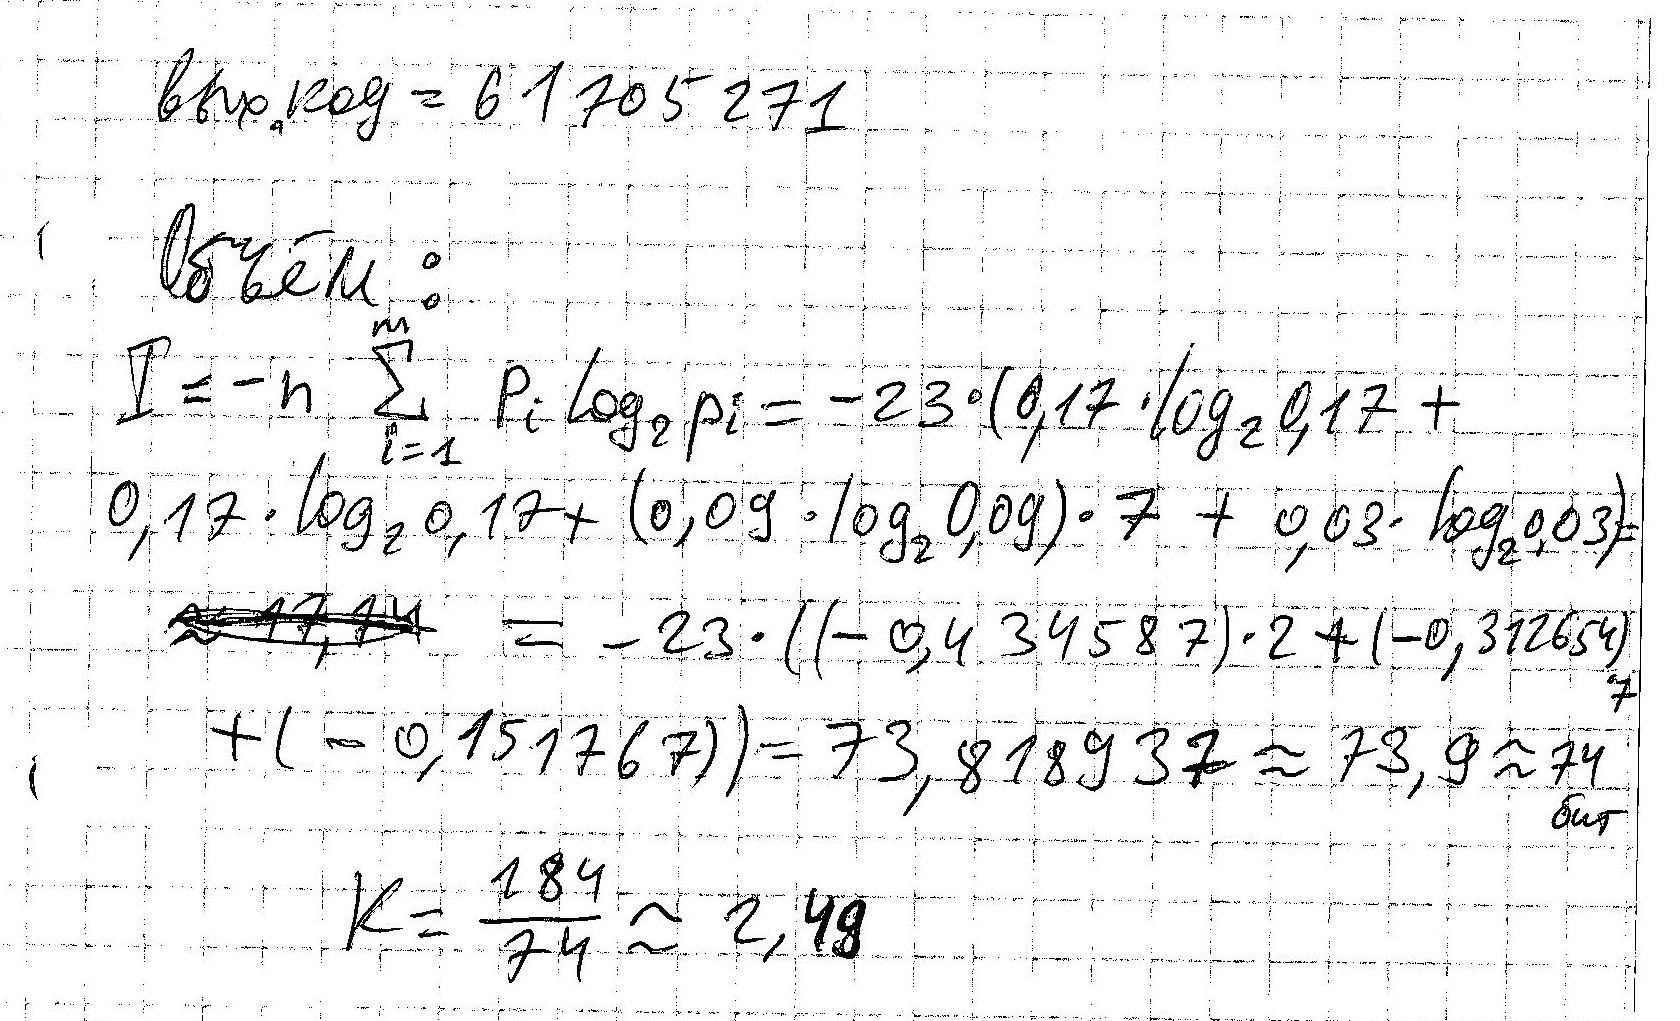 вых.код = 61705271
Объём:
I = -n ∑_{i=1}^{m} p_i log₂ p_i = -23·(0,17·log₂0,17 +
0,17·log₂0,17 + (0,09·log₂0,09)·7 + 0,03·log₂0,03) =
≈ 17,14 = -23·((-0,434587)·2 + (-0,312654)·7
+ (-0,151767)) = 73,818937 ≈ 73,9 ≈ 74 бит
K = 184/74 ≈ 2,49